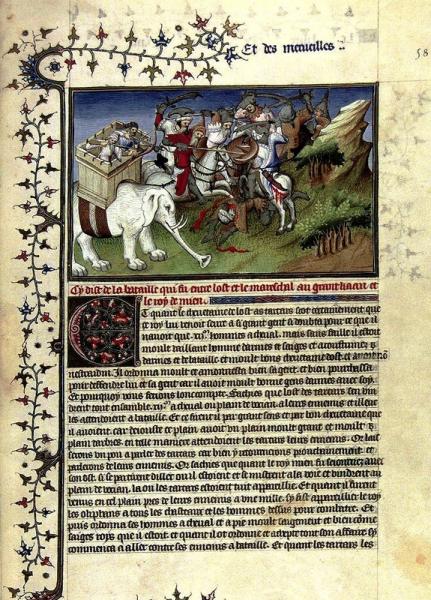 Et des merueilles
58
Cy dist de la bataille qui fu entre lost et le mareschal au grant kaan et
le roy de mien.
Et quant le cheuetaine de lost as tartars scot certainement que
ce roy lui venoit seure a si grant gent si doubta pour ce que il
nauoit que .xij. hommes a cheual. mais sans faille il estoit
moult vaillant homme darmes et saiges et acoustumez
darmes et de bataille et moult bons cheuetaine dost. et auoit nom
nestradin. Il ordonna moult et amonnesta bien sa gent. et bien pourchassa
pour deffendre lui et sa gent car il auoit moult bonne gens darmes auec soy.
Et pourquoy vous feroie loncompte. Sachiez que lost des tartars sen vin
drent tout ensamble .xij. a cheual ou plain de vocian a leurs ennemis et illec
les attendoient a bataille. Et ce firent il par grant sens et par bon cheuetaine que
il auoient. car de couste ce plain auoit vn plain moult grant et moult
plain darbres. en telle maniere attendoient les tartars leurs ennemis. Or lais
serons vn pou a parler des tartars car bien y retournerons prouchainement. et
parlerons de leurs ennemis. Or saches que quant le roy mien fu seiournez auec
son ost. si se partirent dillec ou il estoient et se mistrent a la voie et vindrent au
plain de vocian. la ou les tartars estoient tuit appareillie. Et quant il furent
venus en cel plain pres de leurs ennemis a vne mille. sy fist appareillier le roy
les olephans a tous les chasteaux et les hommes dessus pour combatre. Et
puis ordonna ses hommes a cheual et a pie moult saigement et bien come
saiges roys que il estoit. et quant il ot ordonne et atrepte tout son affaire sy
commenca a aller contre ses ennemis a bataille. Et quant les tartars les